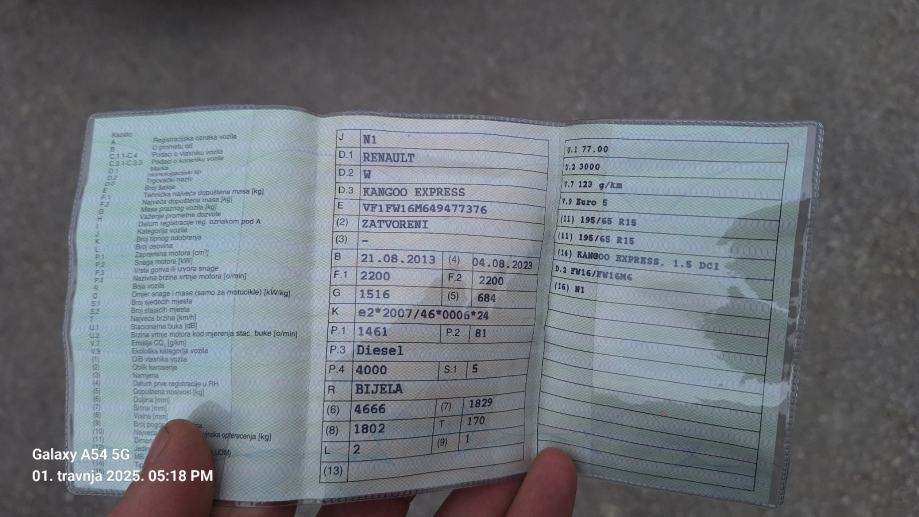 Kazalo:
A Registracijska oznaka vozila
B U prometu od
C.1.1-C.4 Podaci o vlasniku vozila
C.3.1-C.3.3 Podaci o korisniku vozila
D.1 Marka
D.2 Homologacijski tip
D.3 Trgovački naziv
E Broj šasije
F.1 Tehnička najveća dopuštena masa [kg]
F.2 Najveća dopuštena masa [kg]
G Masa praznog vozila [kg]
H Važenje prometne dozvole
I Datum registracije reg. oznakom pod A
J Kategorija vozila
K Broj tipnog odobrenja
L Broj osovina
P.1 Zapremina motora [cm³]
P.2 Snaga motora [kW]
P.3 Vrsta goriva ili izvora snage
P.4 Nazivna brzina vrtnje motora [o/min]
R Boja vozila
Q Omjer snage i mase (samo za motocikle) [kW/kg]
S.1 Broj sjedećih mjesta
S.2 Broj stajaćih mjesta
T Najveća brzina [km/h]
U.1 Stacionarna buka [dB]
U.2 Brzina vrtnje motora kod mjerenja stac. buke [o/min]
V.7 Emisija CO₂ [g/km]
V.9 Ekološka kategorija vozila
(1) OIB vlasnika vozila
(2) Oblik karoserije
(3) Namjena
(4) Datum prve registracije u RH
(5) Dopuštena nosivost [kg]
(6) Duljina [mm]
(7) Širina [mm]
(8) Visina [mm]
(9) Broj pogo
(10) opterećenja [kg]
(11)
J N1
D.1 RENAULT
D.2 W
D.3 KANGOO EXPRESS
E VF1FW16M649477376
(2) ZATVORENI
(3) –
B 21.08.2013 (4) 04.08.2023
F.1 2200 F.2 2200
G 1516 (5) 684
K e2*2007/46*0006*24
P.1 1461 P.2 81
P.3 Diesel
P.4 4000 S.1 5
R BIJELA
(6) 4666 (7) 1829
(8) 1802 T 170
L 2 (9) 1
(13)
U.1 77.00
U.2 3000
V.7 123 g/km
V.9 Euro 5
(11) 195/65 R15
(11) 195/65 R15
(16) KANGOO EXPRESS, 1.5 DCI
D.2 FW16/FW16M6
(16) N1
Galaxy A54 5G
01. travnja 2025. 05:18 PM